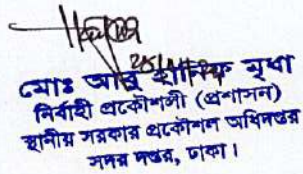 মোঃ আবু হানিফ মৃধা
নির্বাহী প্রকৌশলী (প্রশাসন)
স্থানীয় সরকার প্রকৌশল অধিদপ্তর
সদর দপ্তর, ঢাকা।